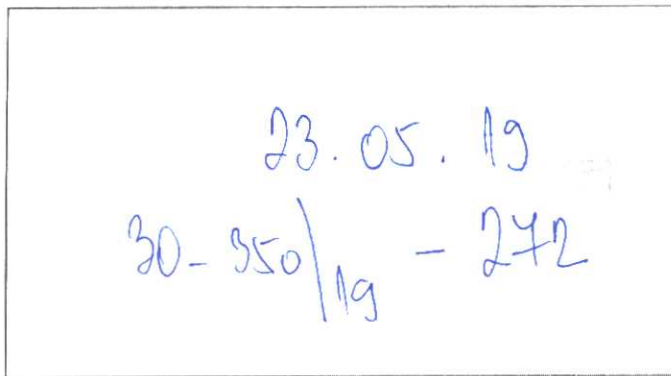 23.05.19
30-350/19-272